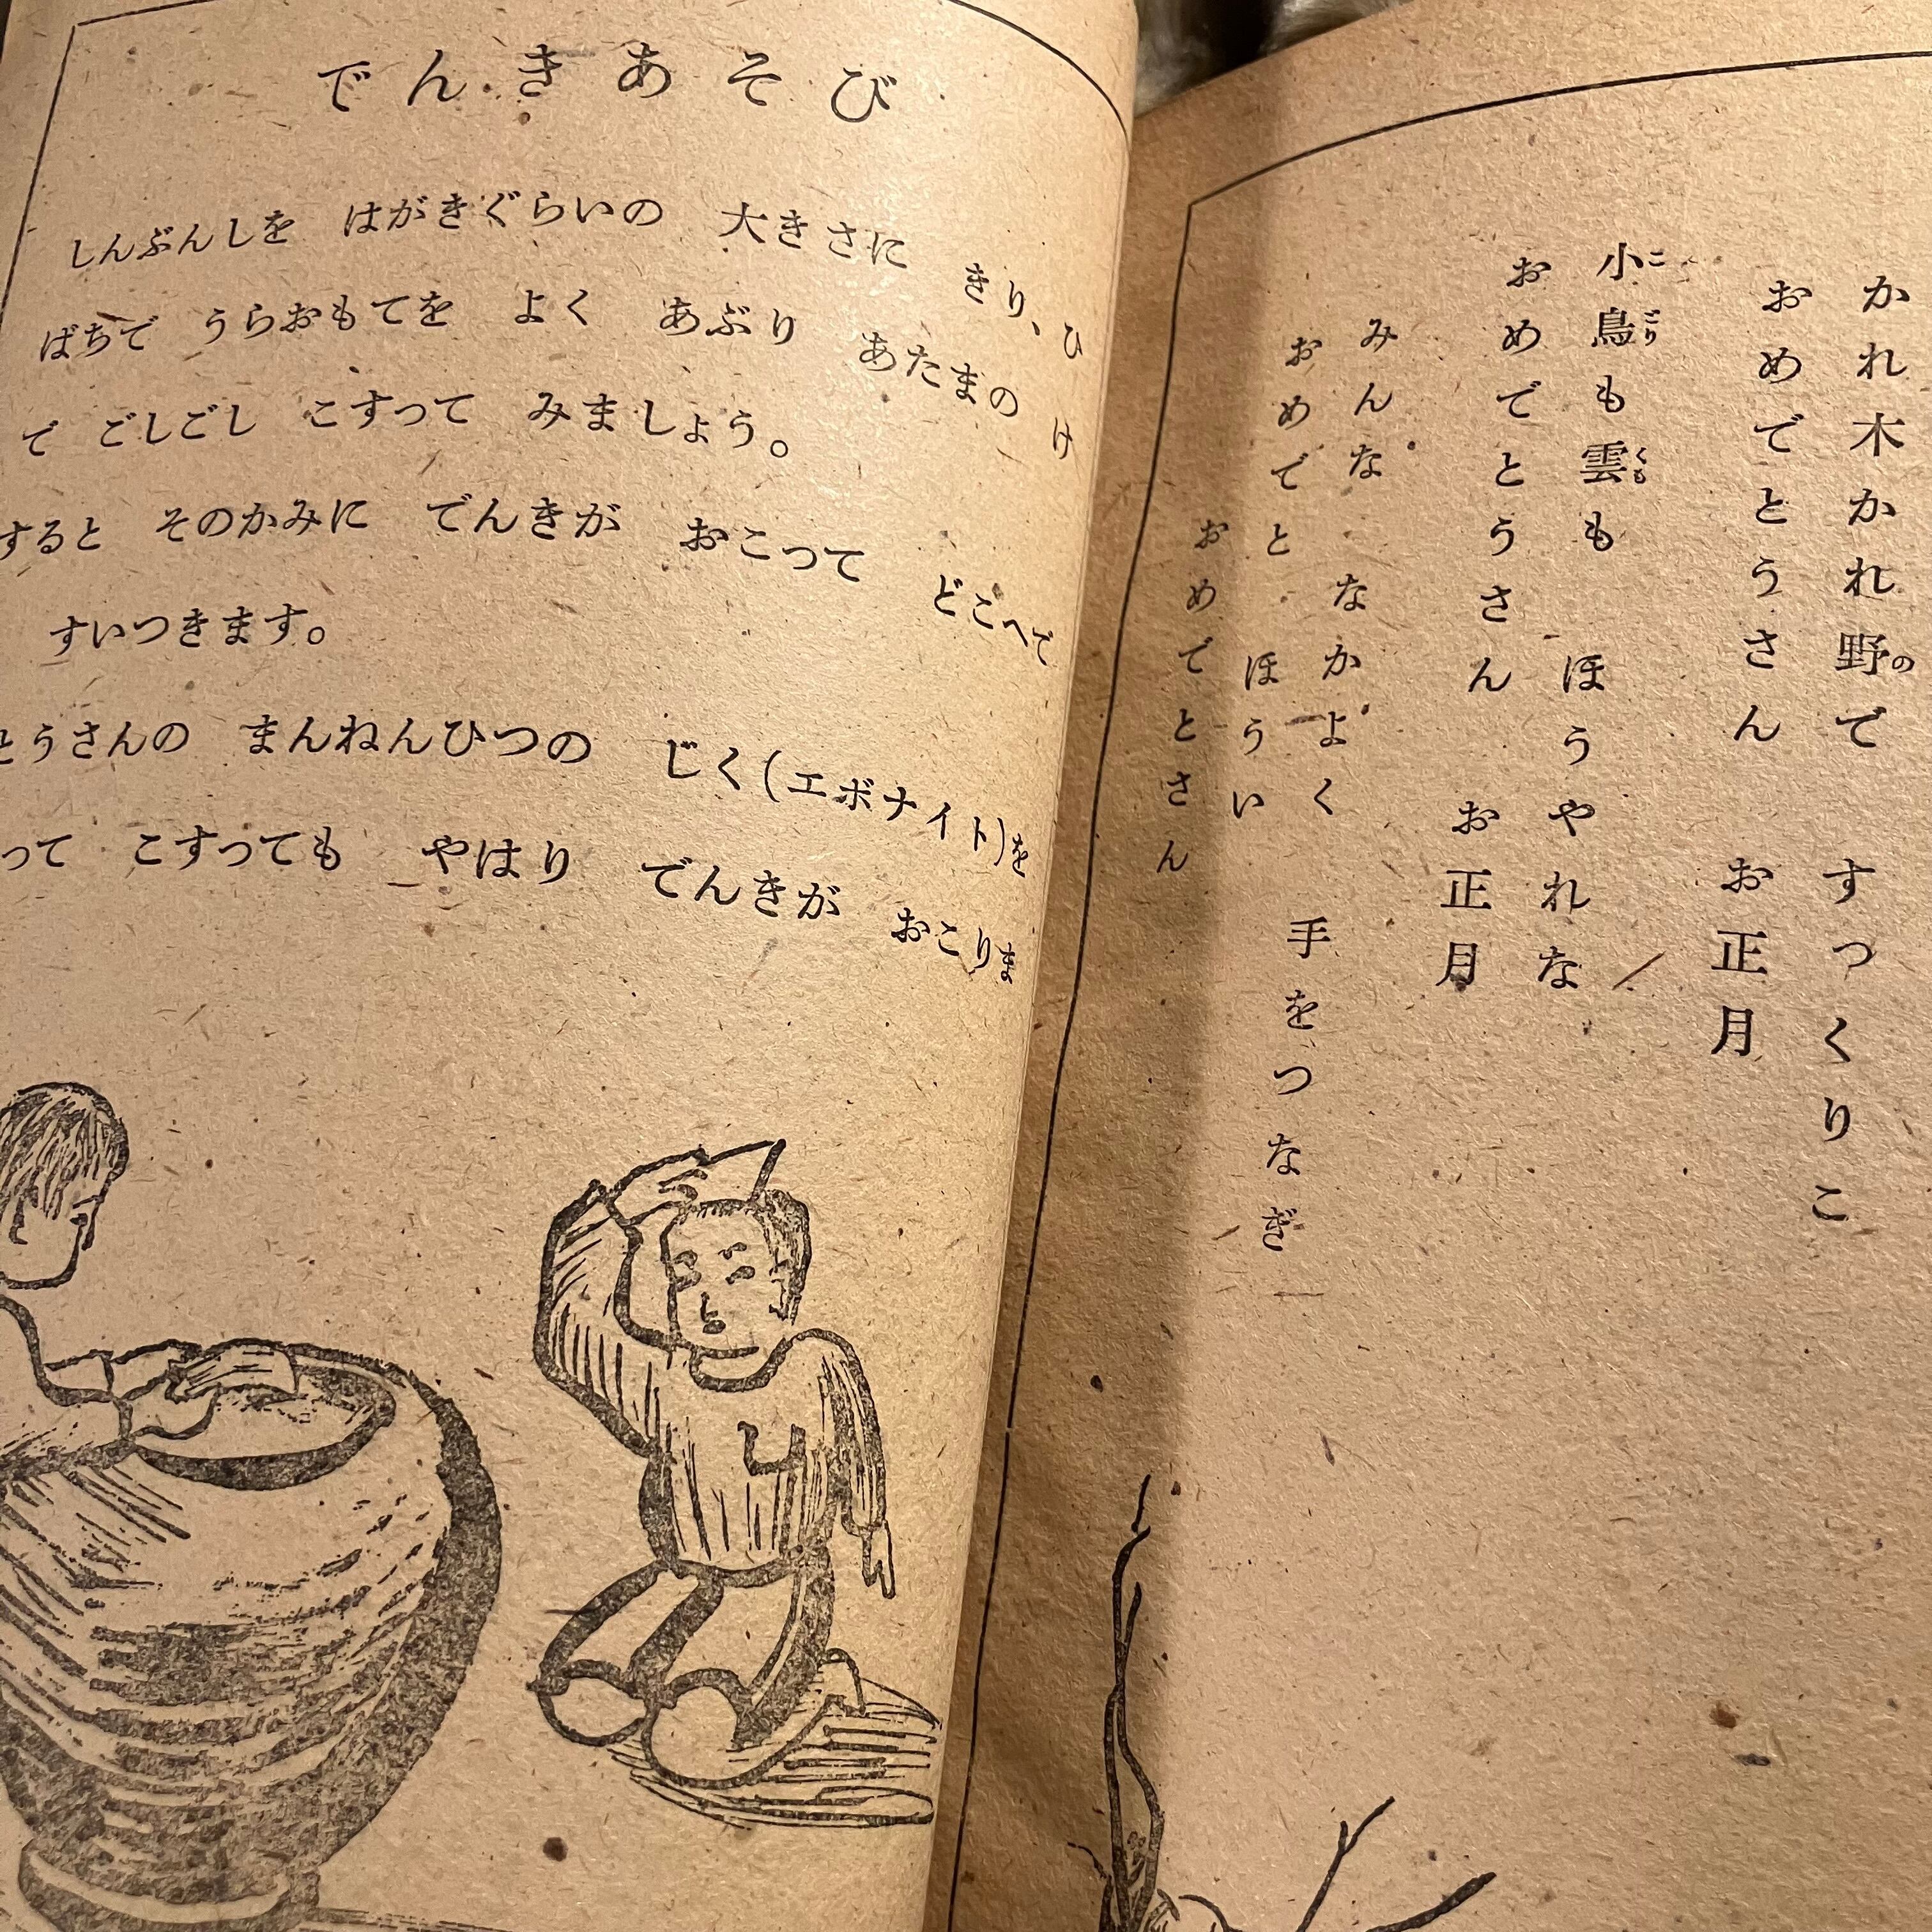 でんきあそび
しんぶんしを はがきぐらいの 大きさに きり、ひ
ばちで うらおもてを よく あぶり あたまの け
で ごしごし こすって みましょう。
すると そのかみに でんきが おこって どこへで
すいつきます。
とうさんの まんねんひつの じく(エボナイト)を
って こすっても やはり でんきが おこりま
かれ木かれ野で すつくりこ
の
おめでとうさん お正月
小鳥も雲も ほうやれな
こ どり くも
おめでとうさん お正月
みんな なかよく 手をつなぎ
おめでと ほうい
おめでとさん